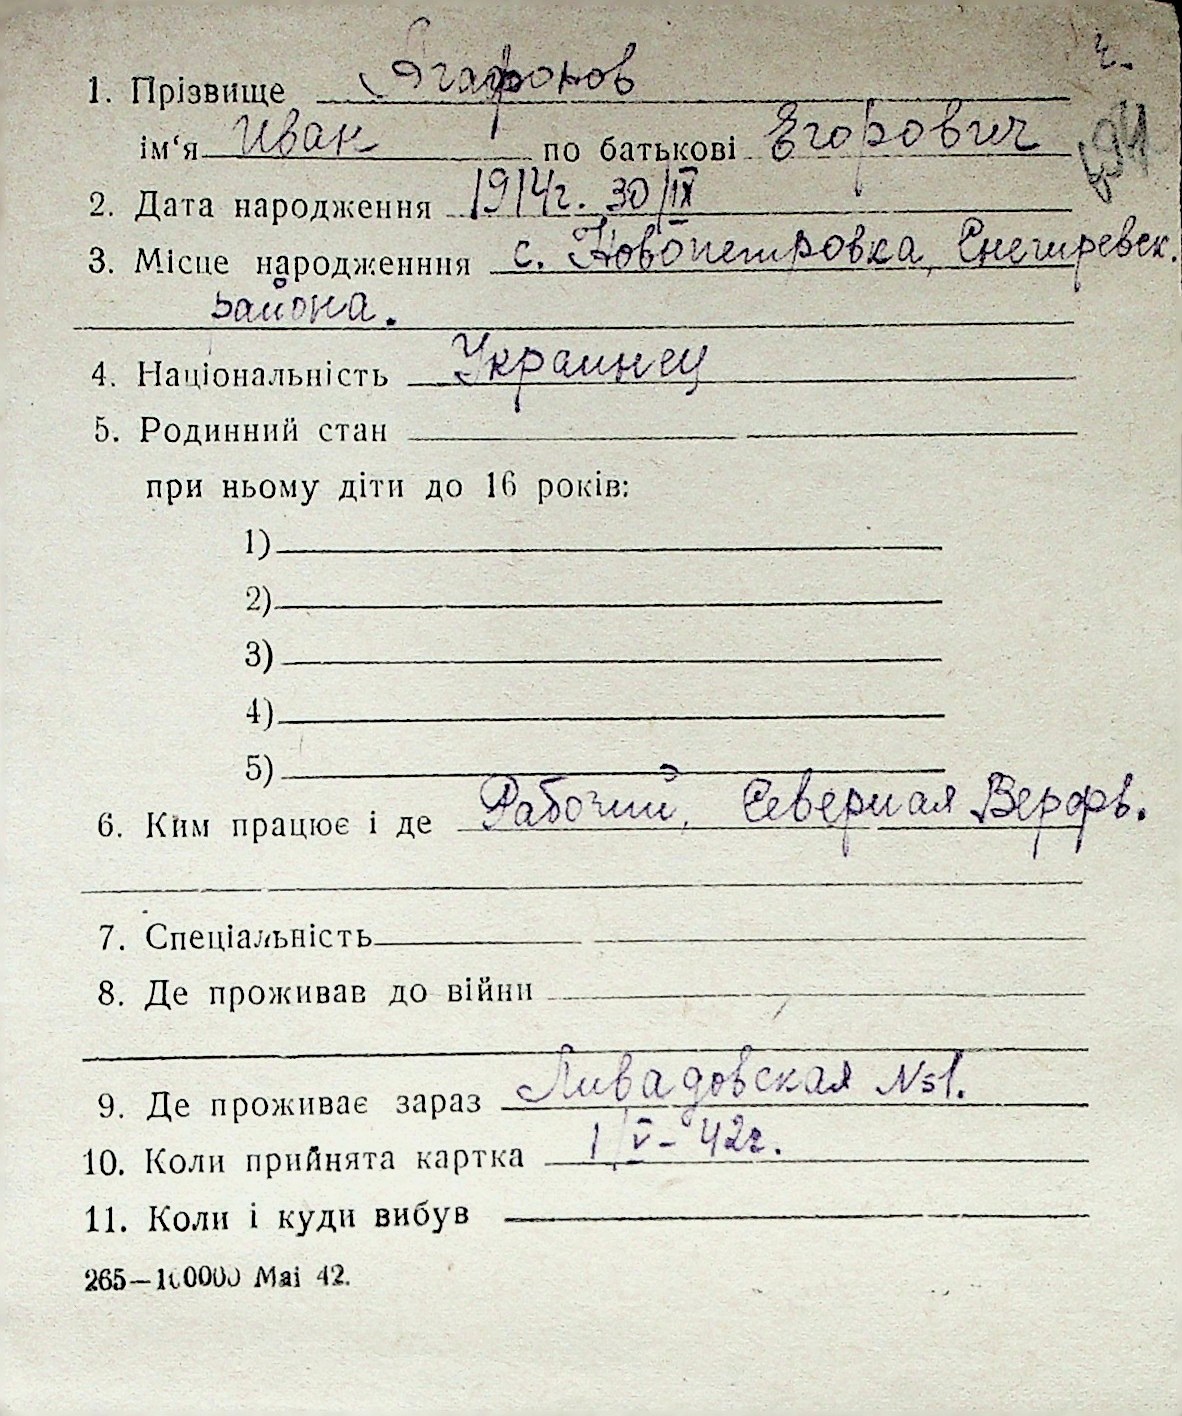 1. Прізвище Агафонов
ім‘я Иван по батькові Егорович
2. Дата народження 1914г. 30/IX
3. Місце народженння с. Новопетровка, Снегиревск.
района.
4. Національність Украинец
5. Родинний стан
при ньому діти до 16 років:
1)
2)
3)
4)
5)
6. Ким працює і де Рабочий, Северная Верфь.
7. Спеціальність
8. Де проживав до війни
9. Де проживає зараз Ливадовская №1.
10. Коли прийнята картка 1/V-42г.
11. Коли і куди вибув
265—100000 Mai 42.